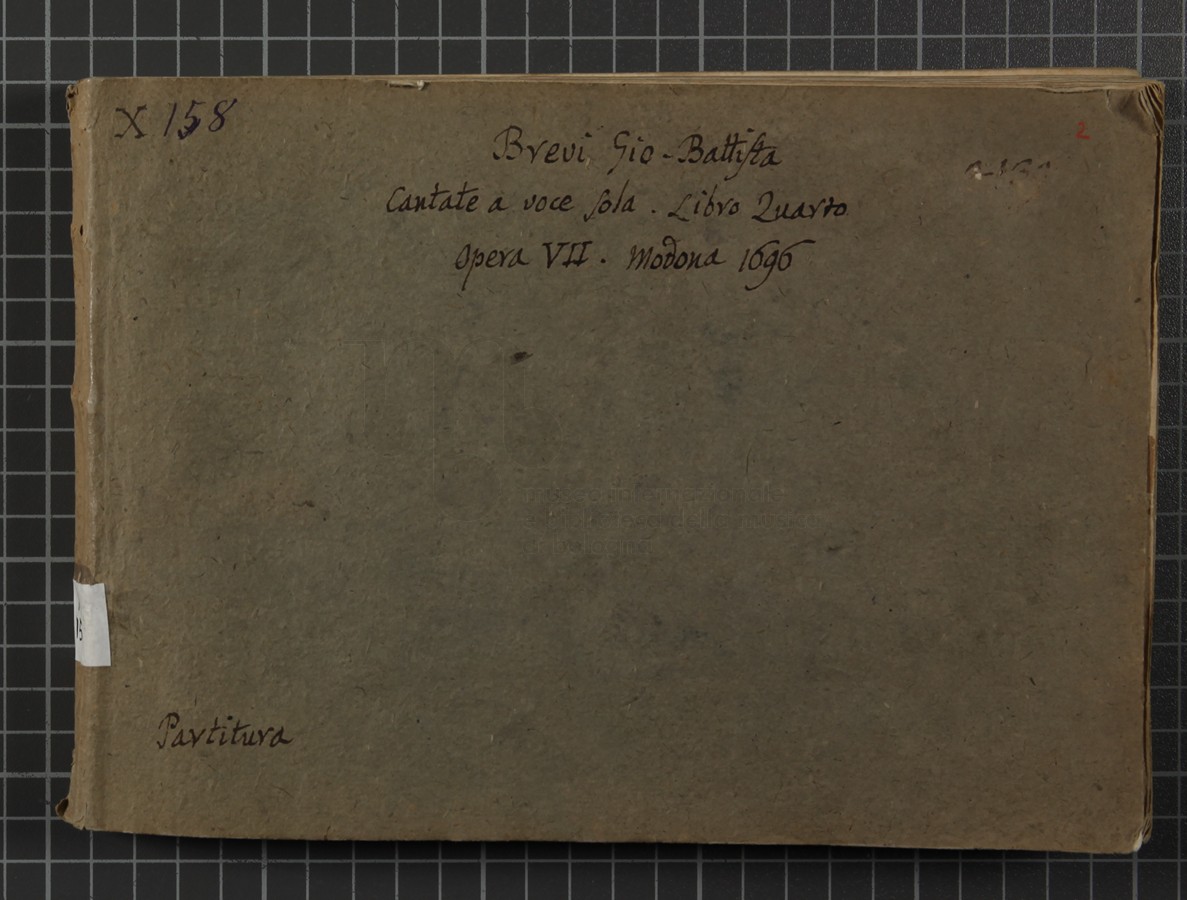 X 158
2
Brevi Gio-Battista
Cantate a voce sola. Libro Quarto
Opera VII. Modona 1696
museo internazionale
e biblioteca della musica
di bologna
Partitura